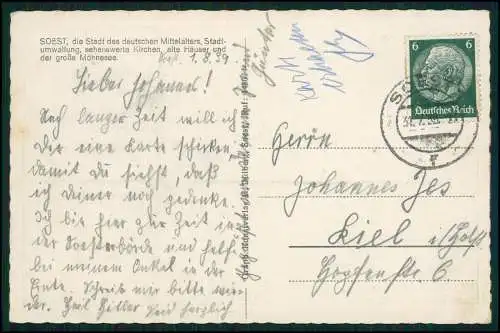 SOEST, die Stadt des deutschen Mittelalters, Stadt-
umwallung, sehenswerte Kirchen, alte Häuser und
der große Möhnesee.
1.8.39.
Lieber Johannes!
Nach langer Zeit will ich
Dir eine Karte schicken
damit Du siehst, daß
ich Deiner noch gedenke.
Ich bin hier zur Zeit in
der Soesterbörde und helfe
bei meinem Onkel in der
Ernte. Schreib mir bitte wie-
der. Heil Hitler und herzlich
Freund
Günter
6 6
Deutsches Reich
SOEST
Herrn
Johannes Jes
Kiel i/Holst.
Hopfenstr. 6